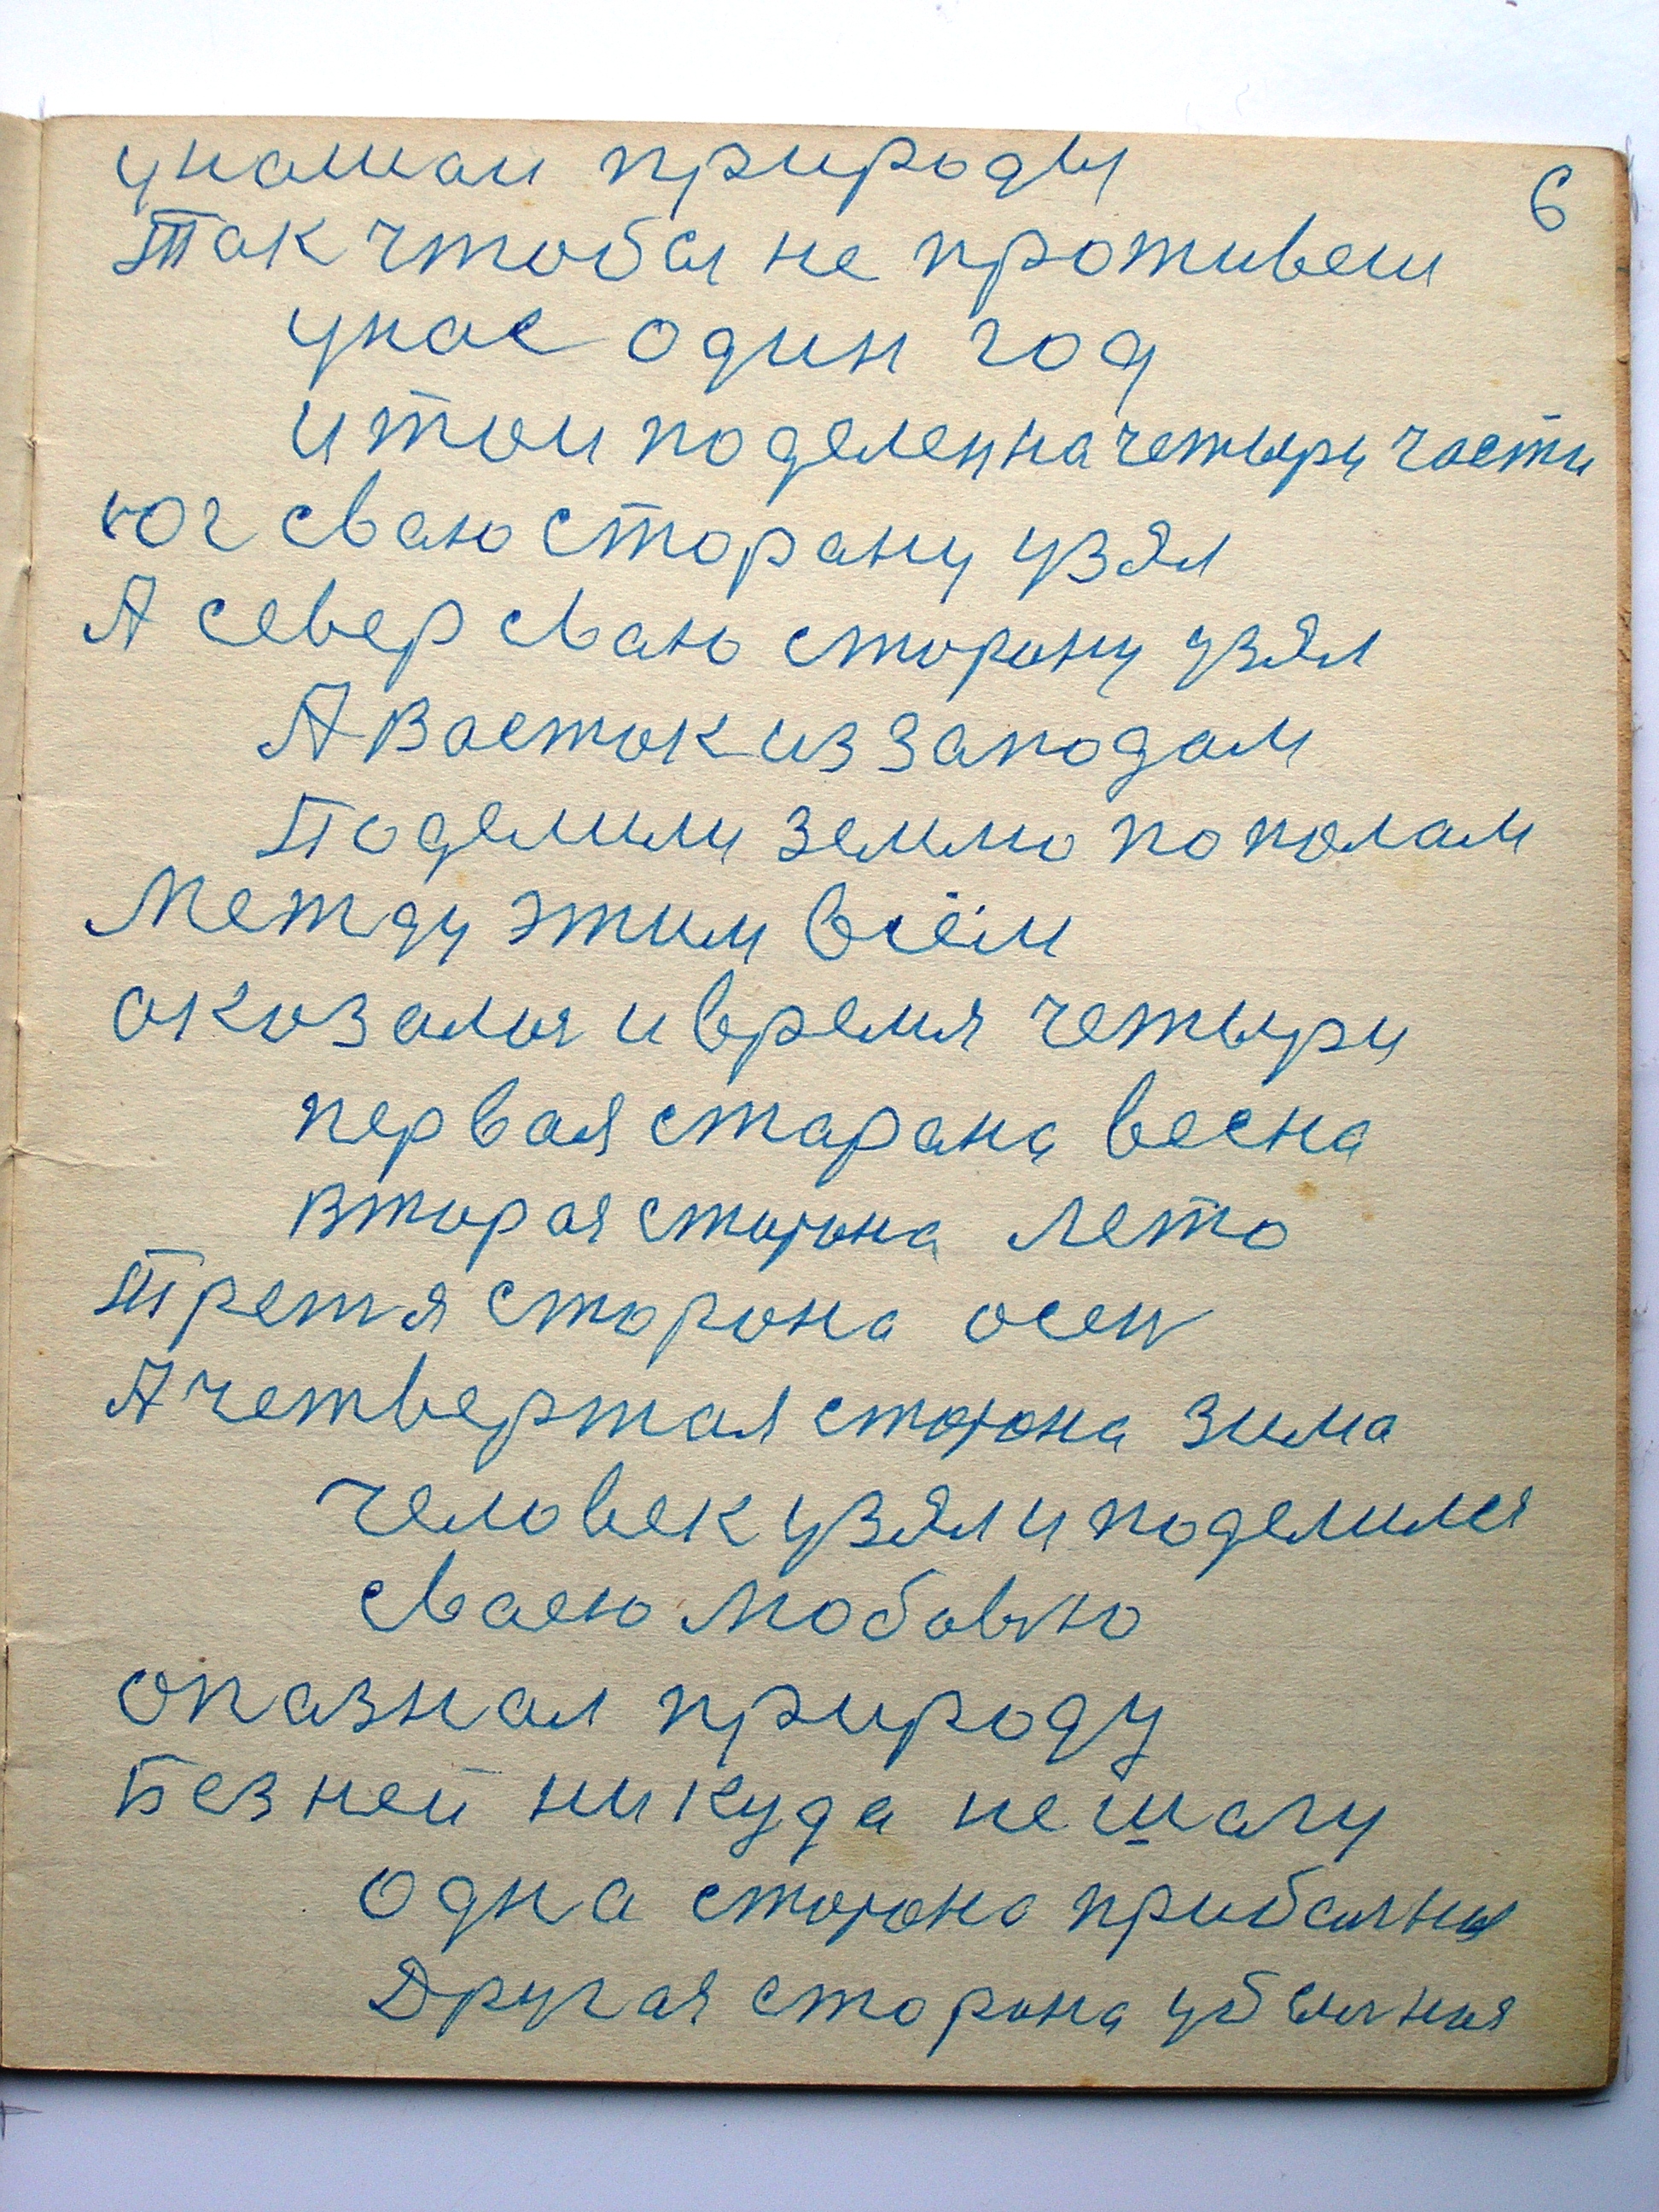 6
унашаи природы
Так чтобы не противеш
унас один год
и тои поделен на четыри части
юг сваю сторану узял
А север сваю сторону узял
А Васток из Заподам
Поделили землю по полам
Между этим всём
оказалося и время четыри
первая старана весна
вторая сторона лето
Третя сторона осен
А четвертая сторона зима
человек узял и поделился
сваею любовью
опазнал природу
Без ней никуда не шагу
одна сторона прибыльная
Другая сторона убыльная